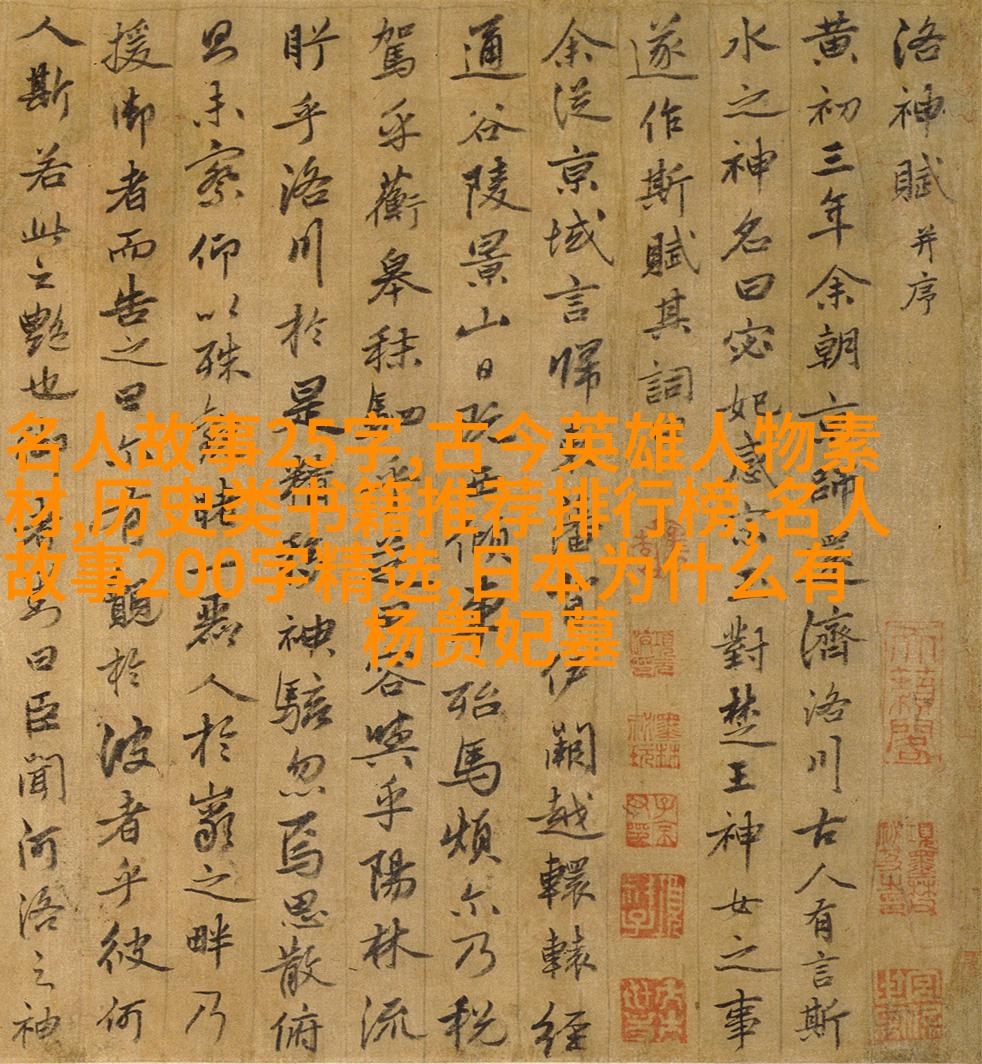 洛神賦并序
黄初三年余朝師濟洛川古人有言斯
水之神名曰宓妃感宋對楚王神女之事
遂作斯賦其詞
余従京域言歸伊闕越轘轅經
通谷陵景山日既西傾殆馬煩尓乃税
駕乎蘅皋秣駟容與乎陽林流
眄乎洛川於是精移神駭忽焉思散俯
則未察仰以殊睹一麗人於巖之畔乃
援御者而告之曰尓有覿於彼者乎彼何
人斯若此之艷也御者曰臣聞河洛之神
名人故事25字,古今英雄人物素
材,历史类书籍推荐排行榜,名人
故事200字精选,日本为什么有
杨贵妃墓